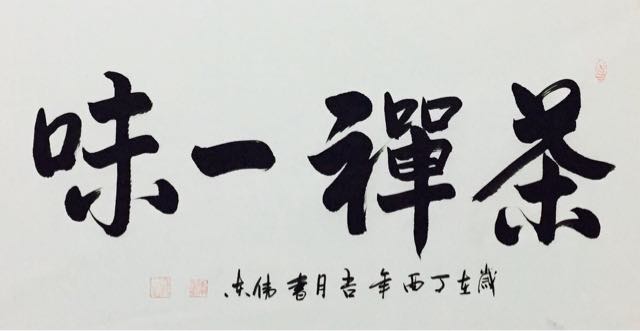 茶禪一味
歲在丁酉年吉月書伟东